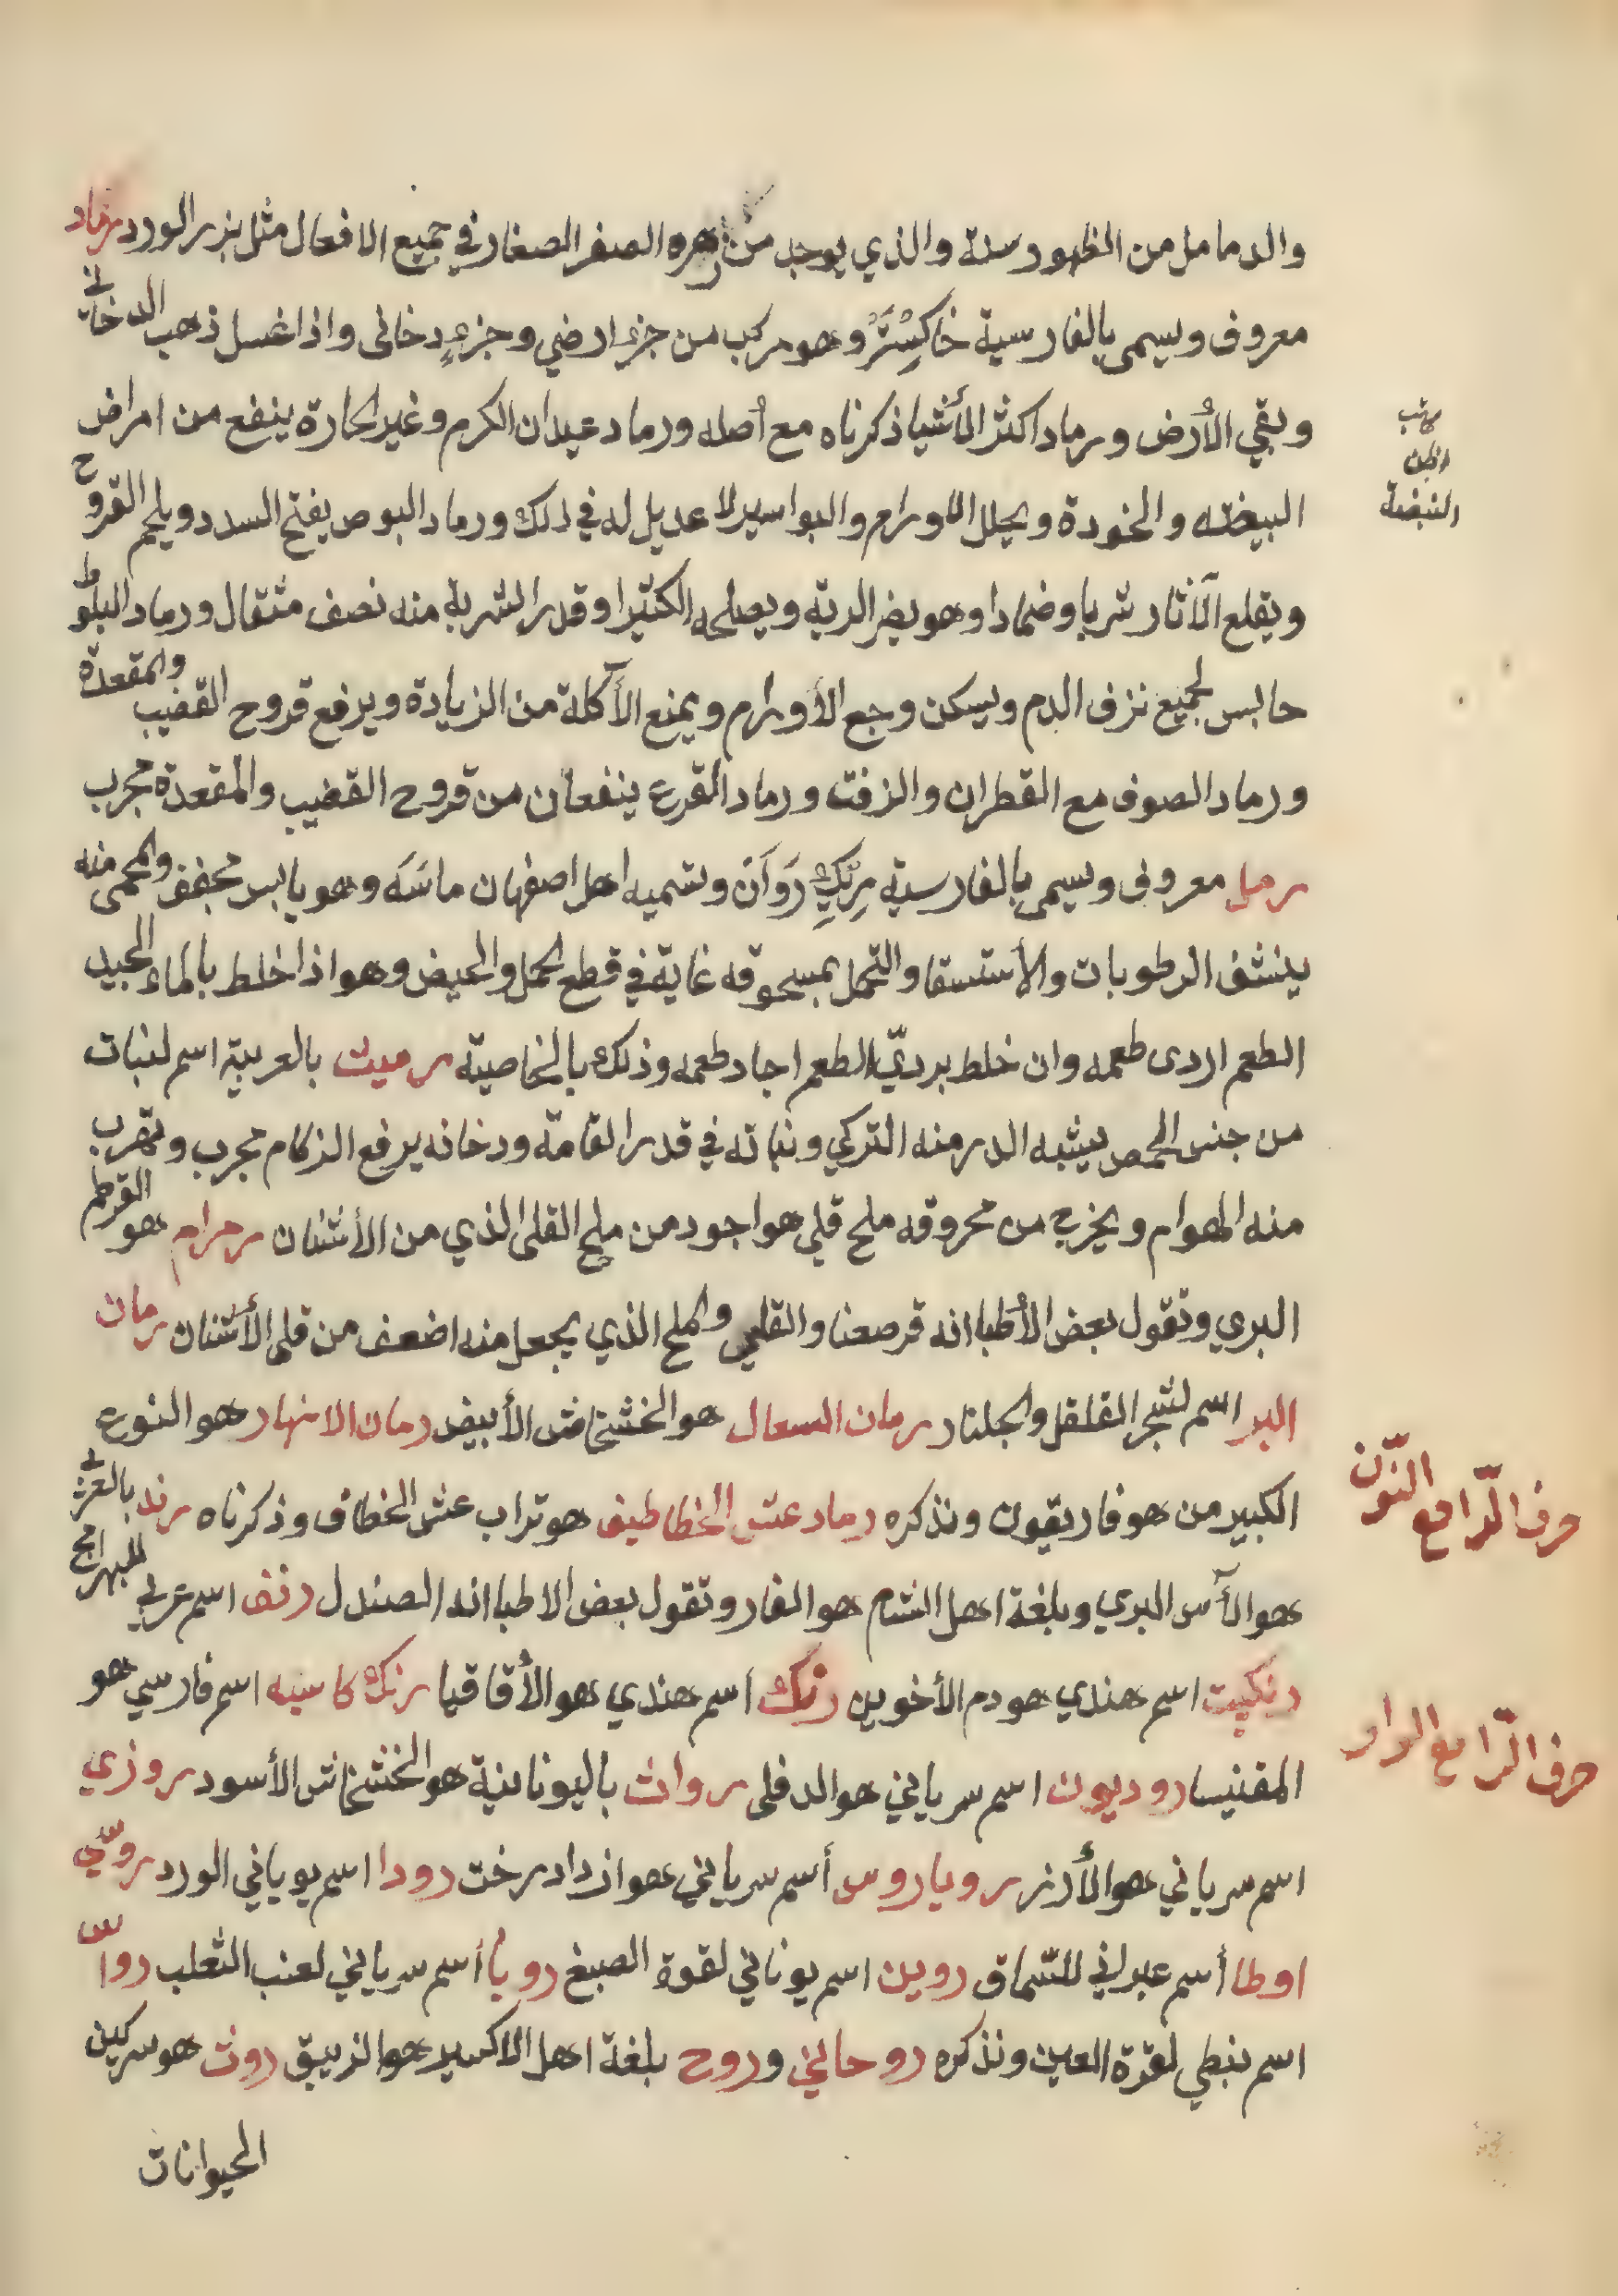 والدمامل من الظهور سنة والذي يوجد من زهره الصفر الصغار في جميع الافعال مثل بزر الورد رماد
معروف ويسمى بالفارسية خاكِسْتَرْ وهو مركب من جزءٍ ارضي وجزءٍ دخانى واذا غسل ذهب الدخانى
وبقي الأرض ورماد اكثر الأشيا ذكرناه مع أصله ورماد عيدان الكرم وغير الحارة ينفع من امراض
البيضه والخودة ويحلل الاورام والبواسير لا عديل له في ذلك ورماد البوص يفتح السدد ويلحم القروح
ويقلع الآثار شربا وضمادا وهو يضر الرية ويصلحه الكثيرا وقدر الشربة منه نصف مثقال ورماد البلوط
حابس لجميع نزف الدم ويسكن وجع الأورام ويمنع الآكلة من الزيادة ويرفع قروح القضيب والمقعدة
ورماد الصوف مع القطران والزفت ورماد القرع ينفعان من قروح القضيب والمقعدة مجرب
رمل معروف ويسمى بالفارسية رِيكِ رَوَانْ وتسميه اهل اصفهان ماسَه وهو يابس مجفف والمحمى منه
ينشف الرطوبات والأستسقا والتحمل بمسحوقه غاية في قطع الحمل والحيض وهو اذا خلط بالماء الجيد
الطعم اردى طعمه وان خلط برديّ الطعم اجاد طعمه وذلك بالخاصية رميث بالعربية اسم لنبات
من جنس الحمص يشبه الدرمنه التركي ونباته في قدر القامة ودخانه يرفع الزكام مجرب وتهرب
منه الهوام ويخرج من محروقه ملح قلي هو اجود من ملح القلى الذي من الأشنان رمرام هو القرطم
البري وتقول بعض الأطبا انه قرصعنا والقلي والملح الذي يجعل منه اضعف من قلى الأشنان رمان
البر اسم لشجر القلقل والجلنار رمان السعال هو الخشخاش الأبيض رمان الانهار هو النوع
الكبير من هوفاريقون ونذكره رماد عش الخطاطيف هو تراب عش الخطاف وذكرناه رند بالعربي
هو الآس البري وبلغة اهل الشام هو الغار وتقول بعض الاطبا انه الصندل رنف اسم عربي للبهرامج
رنكپت اسم هندي هو دم الأخوين رنك اسم هندي هو الأقاقيا رنك كاسيه اسم فارسي هو
المقنيسا روديون اسم سرياني هو الدفلى رواث باليونانية هو الخشخاش الأسود روزي
اسم سرياني هو الأرز روياروس أسم سرياني هو ازاد درخت رودا اسم يوياني الورد روسّي
اوطا أسم عبراني للسّماق روين اسم يوناني لقوة الصبغ روبا أسم سرياني لعنب الثعلب رواس
اسم نبطي لقرة العين ونذكره روحاني وروح بلغة اهل الاكسير هو الزيبق روث هو سركين
الحيوانات
البيضة
حرف الرّا مع النّون
حرف الرّا مع الواو